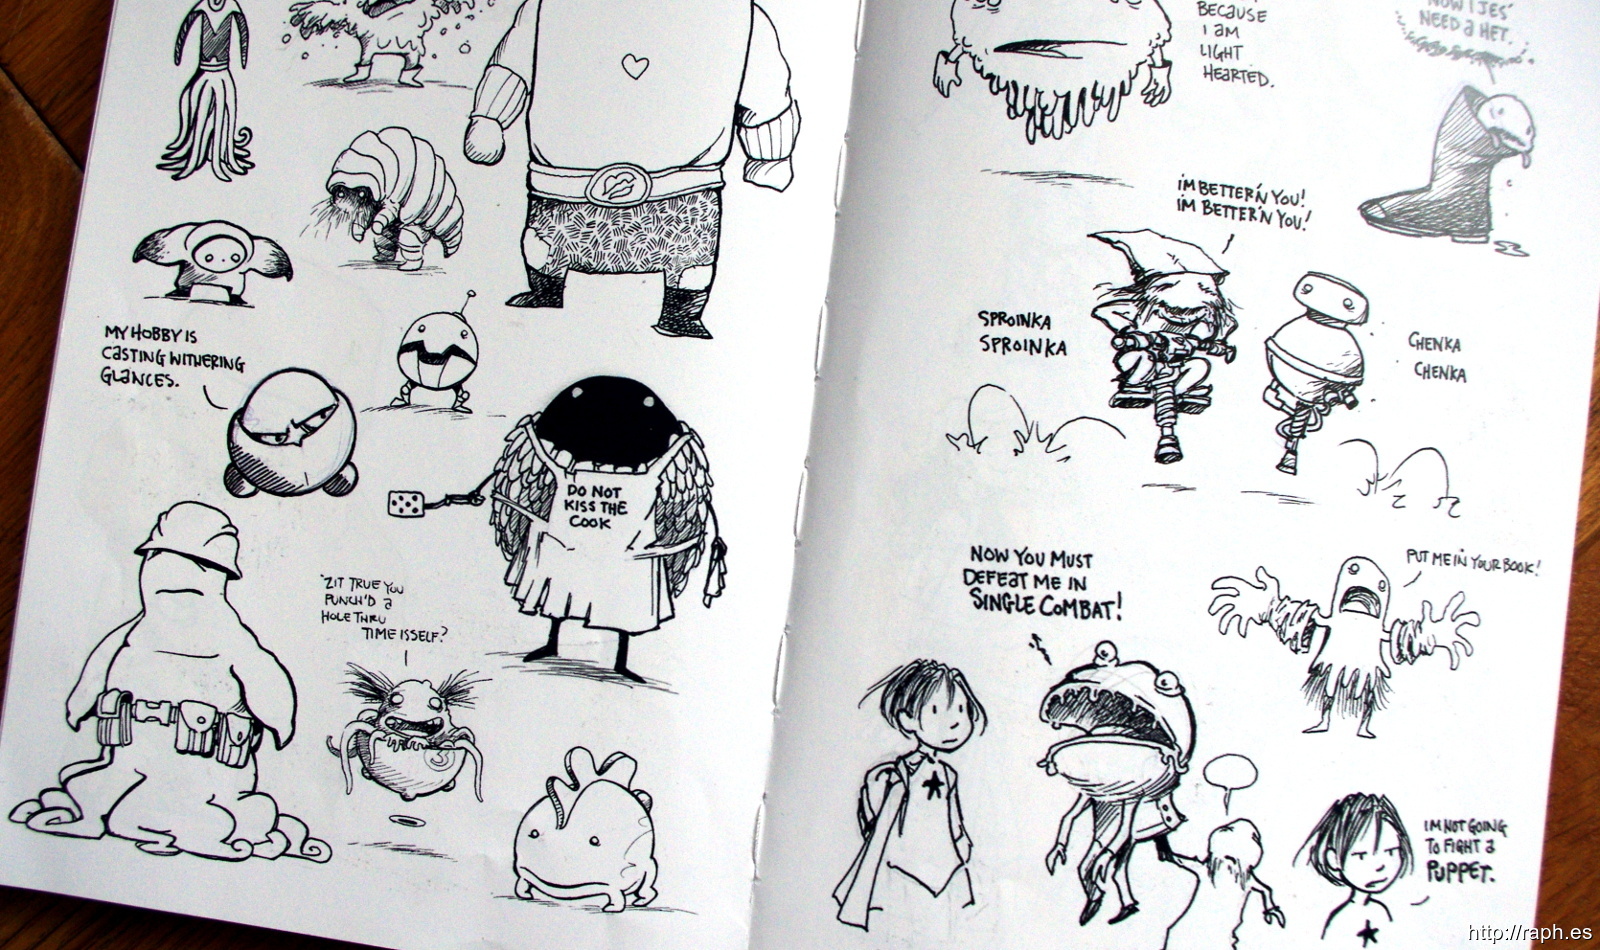 MY HOBBY IS
CASTING WITHERING
GLANCES.
DO NOT
KISS THE
COOK
'ZIT TRUE YOU
PUNCH'D A
HOLE THRU
TIME ISSELF?
BECAUSE
I AM
LIGHT
HEARTED.
NOW I JES'
NEED A HET.
I'M BETTER'N YOU!
I'M BETTER'N YOU!
SPROINKA
SPROINKA
CHENKA
CHENKA
NOW YOU MUST
DEFEAT ME IN
SINGLE COMBAT!
PUT ME IN YOUR BOOK!
I'M NOT GOING
TO FIGHT A
PUPPET.
http://raph.es